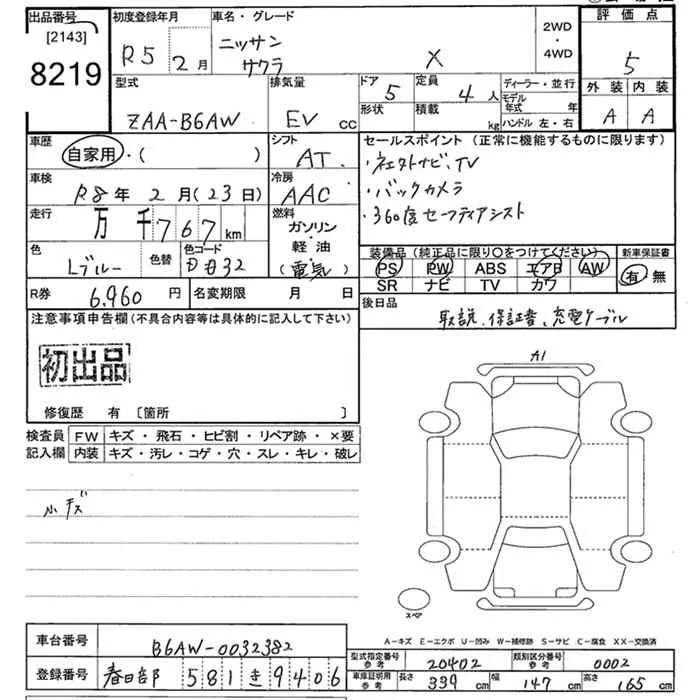 出品番号 初度登録年月 車名・グレード 評価点
[2143]
8219
R5 2月 ニッサン サクラ X 2WD・4WD 5
型式 排気量 ドア 5 定員 4人 ディーラー・並行 外装 内装
ZAA-B6AW EV CC 形状 積載 kg モデル年式 年 ハンドル 左・右 A A
車歴 シフト セールスポイント (正常に機能するものに限ります)
自家用・( ) AT
・社外ナビ、TV
車検 冷房
R8年2月(23日) AAC ・バックカメラ
走行 燃料
万千767km ガソリン ・360度セーフティアシスト
軽油
色 色替 色コード (電気) 装備品 (純正品に限り〇をつけてください) 新車保証書
Lブルー PS PW ABS エアB AW 有 無
SR ナビ TV カワ
R券 6,960円 名変期限 月 日 後日品
取説、保証書、充電ケーブル
注意事項申告欄 (不具合内容等は具体的に記入して下さい)
初出品
A1
修復歴 有 [箇所 ]
検査員 FW キズ・飛石・ヒビ割・リペア跡・×要
記入欄 内装 キズ・汚レ・コゲ・穴・スレ・キレ・破レ
小キズ
スペア
A-キズ E-エクボ U-凹み W-補修跡 S-サビ C-腐食 XX-交換済
車台番号 B6AW-0032382
型式指定番号 参考 20402 類別区分番号 参考 0002
登録番号 春日部 581 き 9406
車庫証明用 参考 長さ 339cm 幅 147cm 高さ 165cm